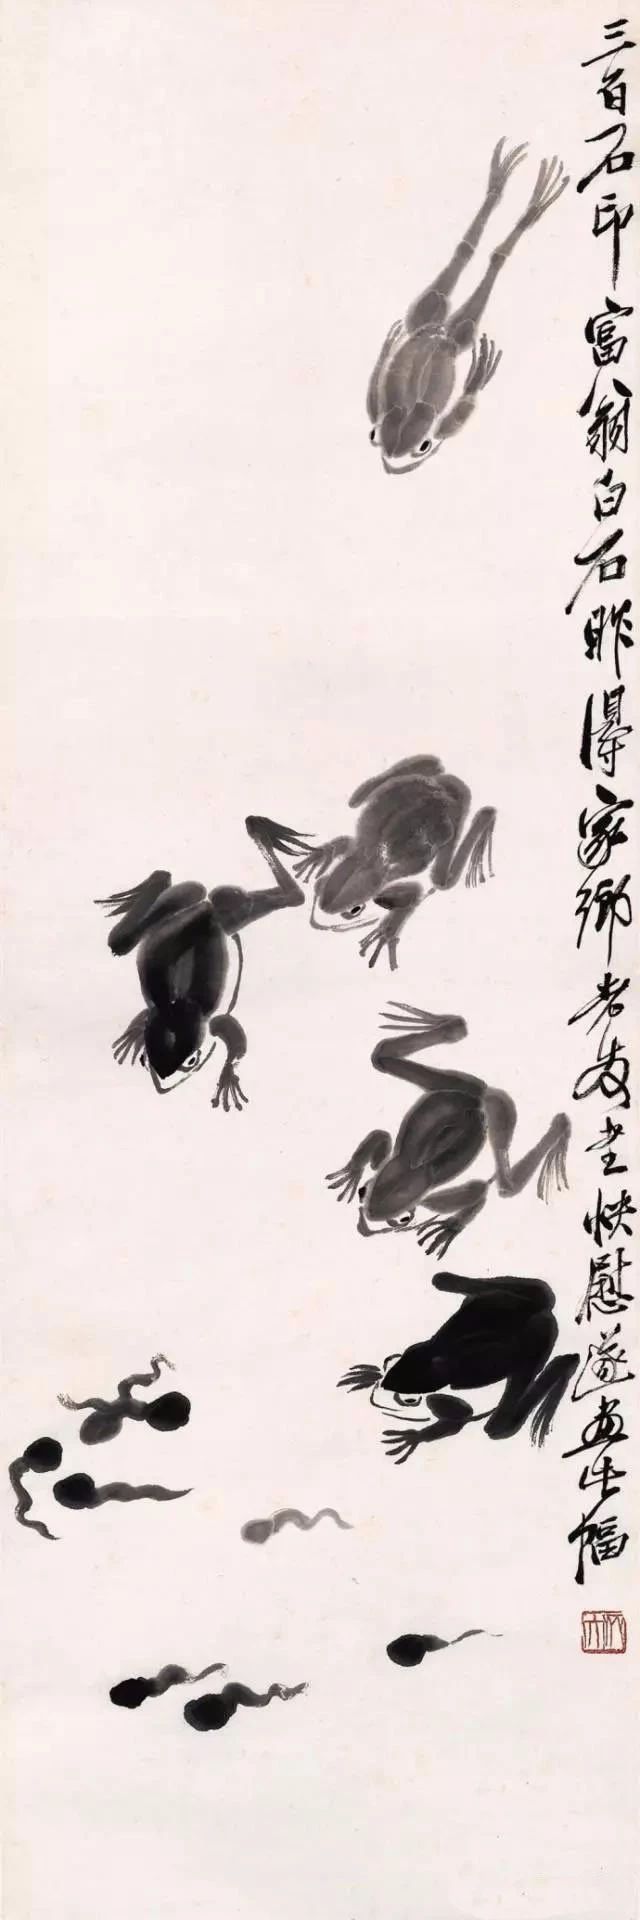 三百石印富翁白石昨得家鄉老友書快慰遂画此幅